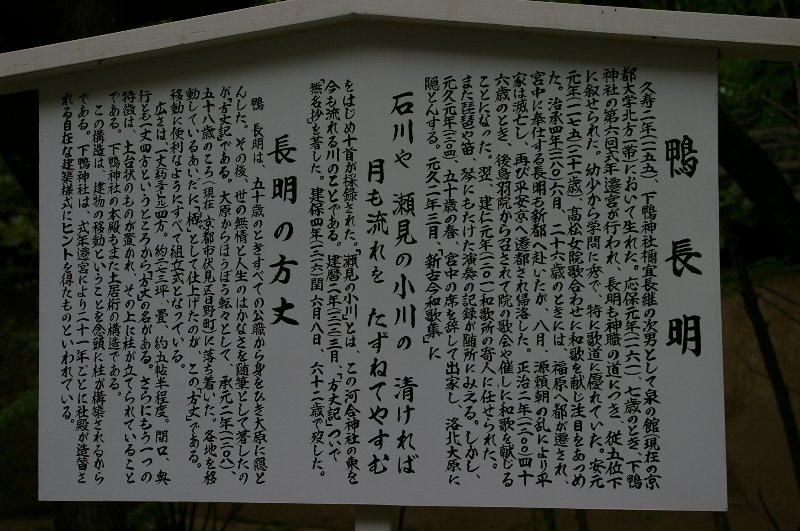 鴨 長 明
久寿二年(一一五五)、下鴨神社禰宜長継の次男として泉の館現在の京
都大学北方(一帯)において生れた。応保元年(一一六一)七歳のとき、下鴨
神社の第六回式年遷宮が行われ、長明も神職の道につき、従五位下
に叙せられた。幼少から学問に秀で、特に歌道に優れていた。安元
元年(一一七五)(二十一歳)、高松女院歌合わせに和歌を献じ注目をあつめ
た。治承四年(一一八〇)六月、二十六歳のときには、福原へ都が遷され、
宮中に奉仕する長明も新都へ赴いたが、八月、源頼朝の乱により平
家は滅亡し、再び平安京へ遷都され帰洛した。正治二年(一二〇〇)四十
六歳のとき、後鳥羽院から召されて院の歌会や催しに和歌を献じる
ことになった。翌、建仁元年(一二〇一)和歌所の寄人に任せられた。
また琵琶や笛、琴にもたけた演奏の記録が随所にみえる。しかし、
元久元年(一二〇四)、五十歳の春、宮中の席を辞して出家し、洛北大原に
隠とんする。元久二年三月、「新古今和歌集」に
石川や 瀬見の小川の 清ければ
月も流れを たずねてやすむ
をはじめ十首が採録された。「瀬見の小川」とは、この河合神社の東を
今も流れる川のことである。建暦二年(一二一二)三月、「方丈記」ついで
「無名抄」を著した。建保四年(一二一六)閏六月八日、六十二歳で歿した。
長明の方丈
鴨 長明は、五十歳のときすべての公職から身をひき大原に隠と
んした。その後、世の無情と人生のはかなさを随筆として著したの
が「方丈記」である。大原からほうぼう転々として、承元二年(一二〇八)、
五十八歳のころ(現在、京都市伏見区日野町)に落ち着いた。各地を移
動しているあいだに、「栖」として仕上げたのが、この「方丈」である。
移動に便利なようにすべて組立式となっている。
広さは一丈(約三㍍)四方。約二・七三坪、畳、約五帖半程度。間口、奥
行とも一丈四方というところから「方丈」の名がある。さらにもう一つの
特徴は、土台状のものが置かれ、その上に柱が立てられていること
である。下鴨神社の本殿もまた土居桁の構造である。
この構造は、建物の移動ということを念頭に柱が構築されるから
である。下鴨神社は、式年遷宮により二十一年ごとに社殿が造替さ
れる自在な建築様式にヒントを得たものといわれている。